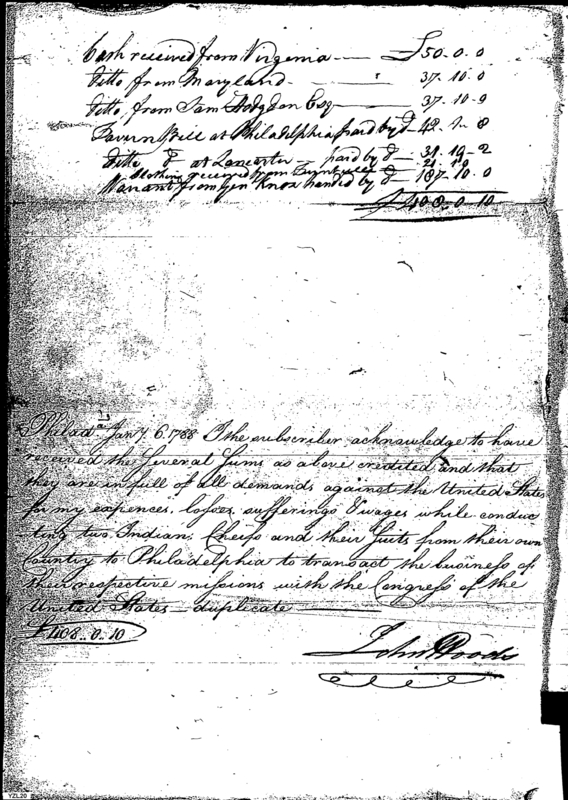 Cash received from Virginia — £50-0-0
Ditto from Maryland — 37-10-0
Ditto from Sam Hodgdon Esq — 37-10-9
Tavern Bill at Philadelphia paid by do 42-1-8
Ditto do at Lancaster — paid by do — 31-19-2
Clothing received from 21-19
Warrant from Gen Knox handed by do — 187-10-0
£408-0-10
Philada Jany 6. 1788 I the subscriber acknowledge to have
received the several sums as above credited and that
they are in full of all demands against the United States
for my expences, losses, sufferings & wages while conduc
ting two Indian Cheifs and their Suits from their own
Country to Philadelphia to transact the business of
their respective missions with the Congress of the
United States — duplicate
£408..0.10
John Woods
VZL20